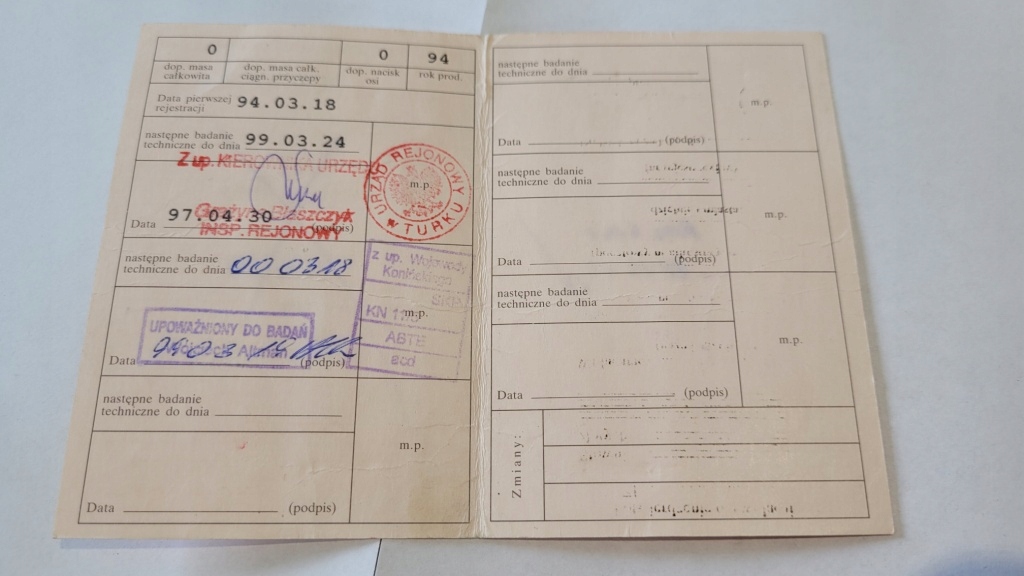 0 0 94
dop. masa całkowita
dop. masa całk. ciągn. przyczepy
dop. nacisk osi
rok prod.
Data pierwszej rejestracji 94.03.18
następne badanie
techniczne do dnia 99.03.24
Z up. KIEROWNIKA URZĘDU
URZĄD REJONOWY W TURKU
m.p.
Grażyna Błaszczyk
Data 97.04.30 (podpis)
INSP. REJONOWY
następne badanie
techniczne do dnia 00 03 18
z up. Wojewody
Konińskiego
SKP
KN
m.p.
UPOWAŻNIONY DO BADAŃ
Data 99 03 (podpis)
acd
następne badanie
techniczne do dnia
m.p.
Data (podpis)
następne badanie
techniczne do dnia
m.p.
Data (podpis)
następne badanie
techniczne do dnia
m.p.
Data (podpis)
następne badanie
techniczne do dnia
m.p.
Data (podpis)
Zmiany: